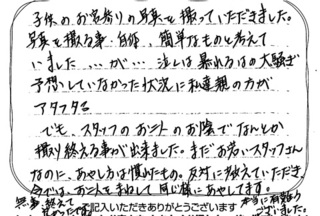 子供のお宮参りの写真を撮っていただきました。
写真を撮る事自体、簡単なものと考えて
いました…が…泣くは暴れるは大騒ぎ
予想していなかった状況に私達親の方が
アタフタ
でも、スタッフのお二人のお陰でなんとか
撮り終える事が出来ました。まだお若いスタッフさん
なのに、あやし方は慣れたもの。反対に教えていただき、
今では、お二人をまねして同じ様にあやしてます。
無事、終えて
本当に有難う
ございました。
ご記入いただきありがとうございます